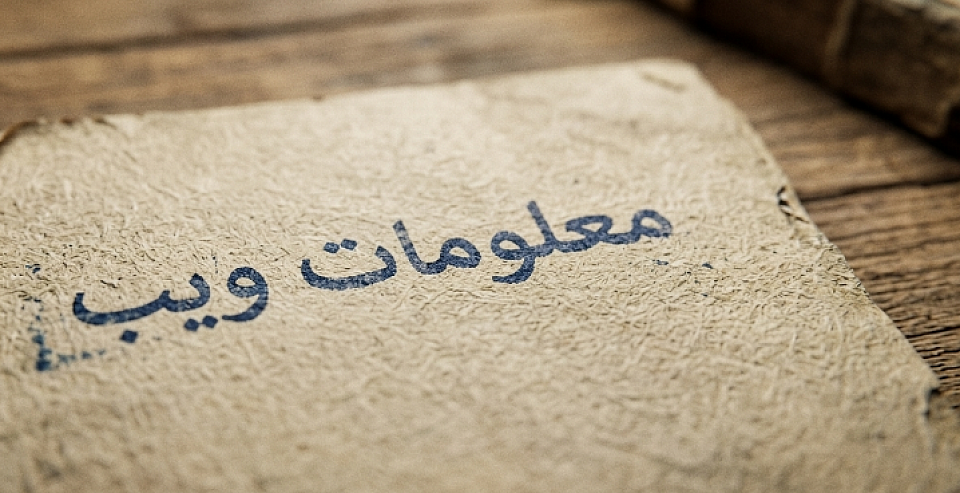 معلومات ويب